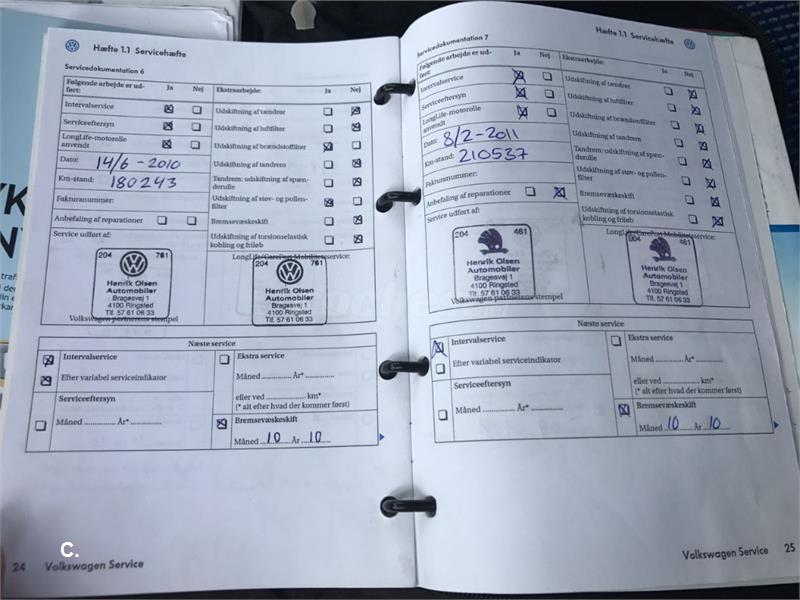 Hæfte 1.1 Servicehæfte
Servicedokumentation 6
Følgende arbejde er udført: Ja Nej
Intervalservice
Serviceeftersyn
LongLife-motorolie anvendt
Dato: 14/6-2010
Km-stand: 180243
Fakturanummer:
Anbefaling af reparationer
Service udført af:
Ekstraarbejde: Ja Nej
Udskiftning af tændrør
Udskiftning af luftfilter
Udskiftning af brændstoffilter
Udskiftning af tandrem
Tandrem: udskiftning af spænderulle
Udskiftning af støv- og pollenfilter
Bremsevæskeskift
Udskiftning af torsionselastisk kobling og friløb
LongLife/CarePort Mobilitetsservice:
204 761
Henrik Olsen
Automobiler
Bragesvej 1
4100 Ringsted
Tlf. 57 61 06 33
Volkswagen partnerens stempel
204 761
Henrik Olsen
Automobiler
Bragesvej 1
4100 Ringsted
Tlf. 57 61 06 33
Næste service
Intervalservice
Efter variabel serviceindikator
Serviceeftersyn
Måned ............... År* ...............
Ekstra service
Måned ............... År* ...............
eller ved ............... km*
(* alt efter hvad der kommer først)
Bremsevæskeskift
Måned 10 År 10
24 Volkswagen Service
C.
Hæfte 1.1 Servicehæfte
Servicedokumentation 7
Følgende arbejde er udført: Ja Nej
Intervalservice
Serviceeftersyn
LongLife-motorolie anvendt
Dato: 8/2-2011
Km-stand: 210537
Fakturanummer:
Anbefaling af reparationer
Service udført af:
Ekstraarbejde: Ja Nej
Udskiftning af tændrør
Udskiftning af luftfilter
Udskiftning af brændstoffilter
Udskiftning af tandrem
Tandrem: udskiftning af spænderulle
Udskiftning af støv- og pollenfilter
Bremsevæskeskift
Udskiftning af torsionselastisk kobling og friløb
LongLife/CarePort Mobilitetsservice:
204 461
Henrik Olsen
Automobiler
Bragesvej 1
4100 Ringsted
Tlf. 57 61 06 33
Volkswagen partnerens stempel
204 461
Henrik Olsen
Automobiler
Bragesvej 1
4100 Ringsted
Tlf. 57 61 06 33
Næste service
Intervalservice
Efter variabel serviceindikator
Serviceeftersyn
Måned ............... År* ...............
Ekstra service
Måned ............... År* ...............
eller ved ............... km*
(* alt efter hvad der kommer først)
Bremsevæskeskift
Måned 10 År 10
Volkswagen Service 25